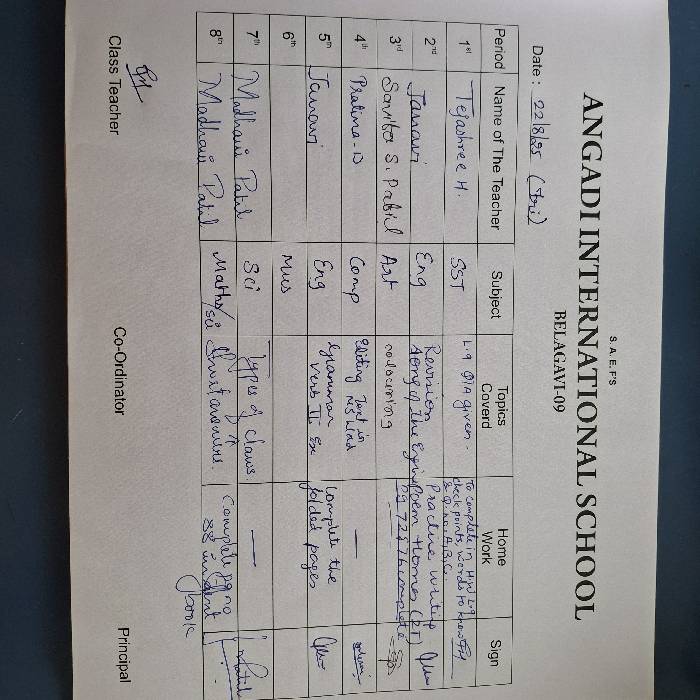 S. A. E. F'S
ANGADI INTERNATIONAL SCHOOL
BELAGAVI-09
Date : 22/8/25 (Fri)
Period Name of The Teacher Subject Topics Coverd Home Work Sign
1st Tejashree H. SST L.9 Q/A given. To complete in H.W L.9 check points, words to know & Q. no. A, B, C.
2nd Janavi Eng Revision Song of the Engine Practice writing poem
3rd Savita S. Patil Art colouring pg 75 & 76 complete
4th Pratima - D Comp Editing Text in MS Word —
5th Janavi Eng Grammar verb II Ex Complete the folded pages
6th Mus
7th Madhavi Patil Sci Types of claws. —
8th Madhavi Patil Maths/sci Complete pg no 38 in book
Class Teacher Co-Ordinator Principal